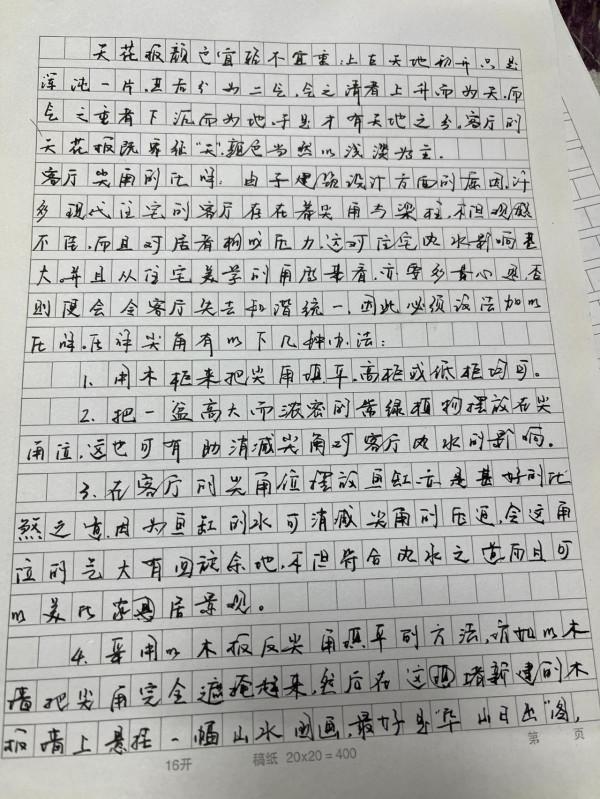 天花板颜色宜轻不宜重：上古天地初开只是
浑沌一片，其后分为二气，气之清者上升而为天，而
气之重者下沉而为地，于是才有天地之分。客厅的
天花板既象征“天”，颜色当然以浅淡为主。
客厅尖角的化解：由于建筑设计方面的原因，许
多现代住宅的客厅存在着尖角与梁柱，不但观感
不佳，而且对居者构成压力，这对住宅风水影响甚
大。并且从住宅美学的角度来看，亦要多费心思，否
则便会令客厅失去和谐统一，因此必须设法加以
化解。化解尖角有以下几种办法：
1. 用木柜来把尖角填平，高柜或低柜均可。
2. 把一盆高大而浓密的常绿植物摆放在尖
角位，这也可有助消减尖角对客厅风水的影响。
3. 在客厅的尖角位摆放鱼缸，亦是甚好的化
煞之道，因为鱼缸的水可消减尖角的压迫，令这角
位的气大有回旋余地，不但符合风水之道而且可
以美化家居景观。
4. 采用以木板反尖角填平的方法，诸如以木
墙把尖角完全遮掩起来，然后在这堵新建的木
板墙上悬挂一幅山水国画，最好是“华山日出”图，
第 页
16开 稿纸 20×20=400